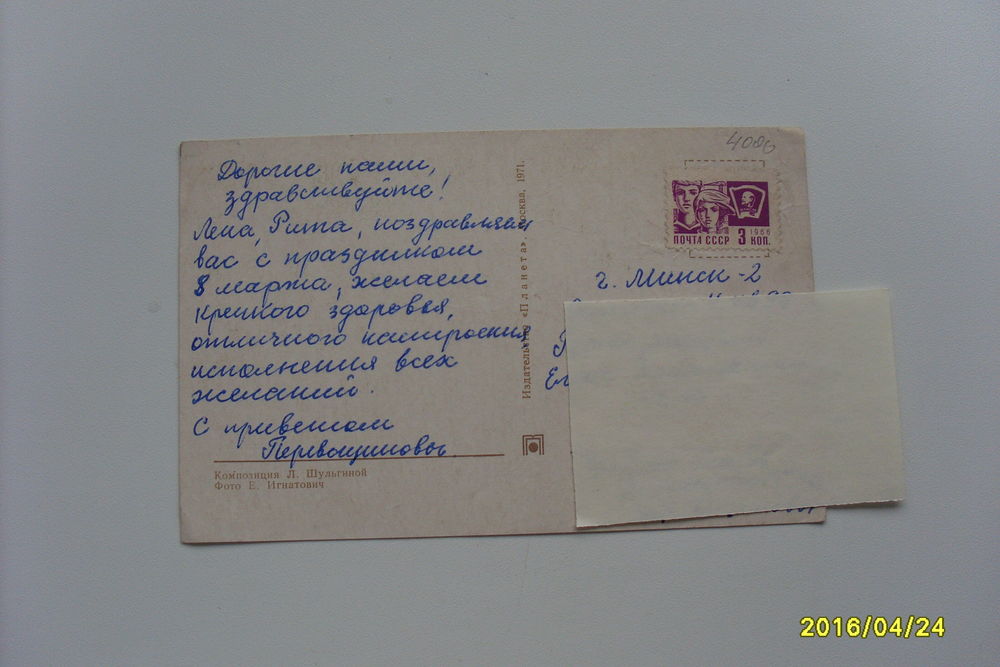 Дорогие наши,
здравствуйте!
Лена, Рита, поздравляем
вас с праздником
8 марта, желаем
крепкого здоровья,
отличного настроения
исполнения всех
желаний.
С приветом
Перевощиковы.
Композиция Л. Шульгиной
Фото Е. Игнатович
Издательство «Планета». Москва, 1971.
4000
1966
ПОЧТА СССР 3 КОП.
г. Минск-2
2016/04/24